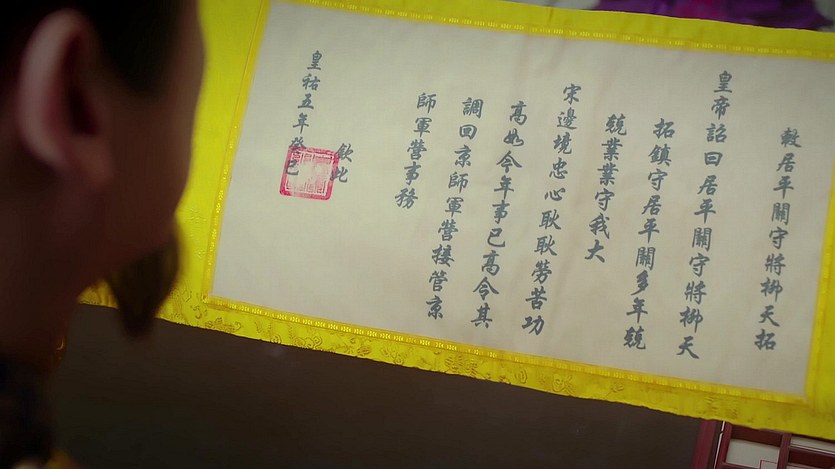 敕居平關守將柳天拓
皇帝詔曰居平關守將柳天
拓鎮守居平關多年兢
兢業業守我大
宋邊境忠心耿耿勞苦功
高如今年事已高令其
調回京師軍營接管京
師軍營事務
欽此
皇祐五年癸巳